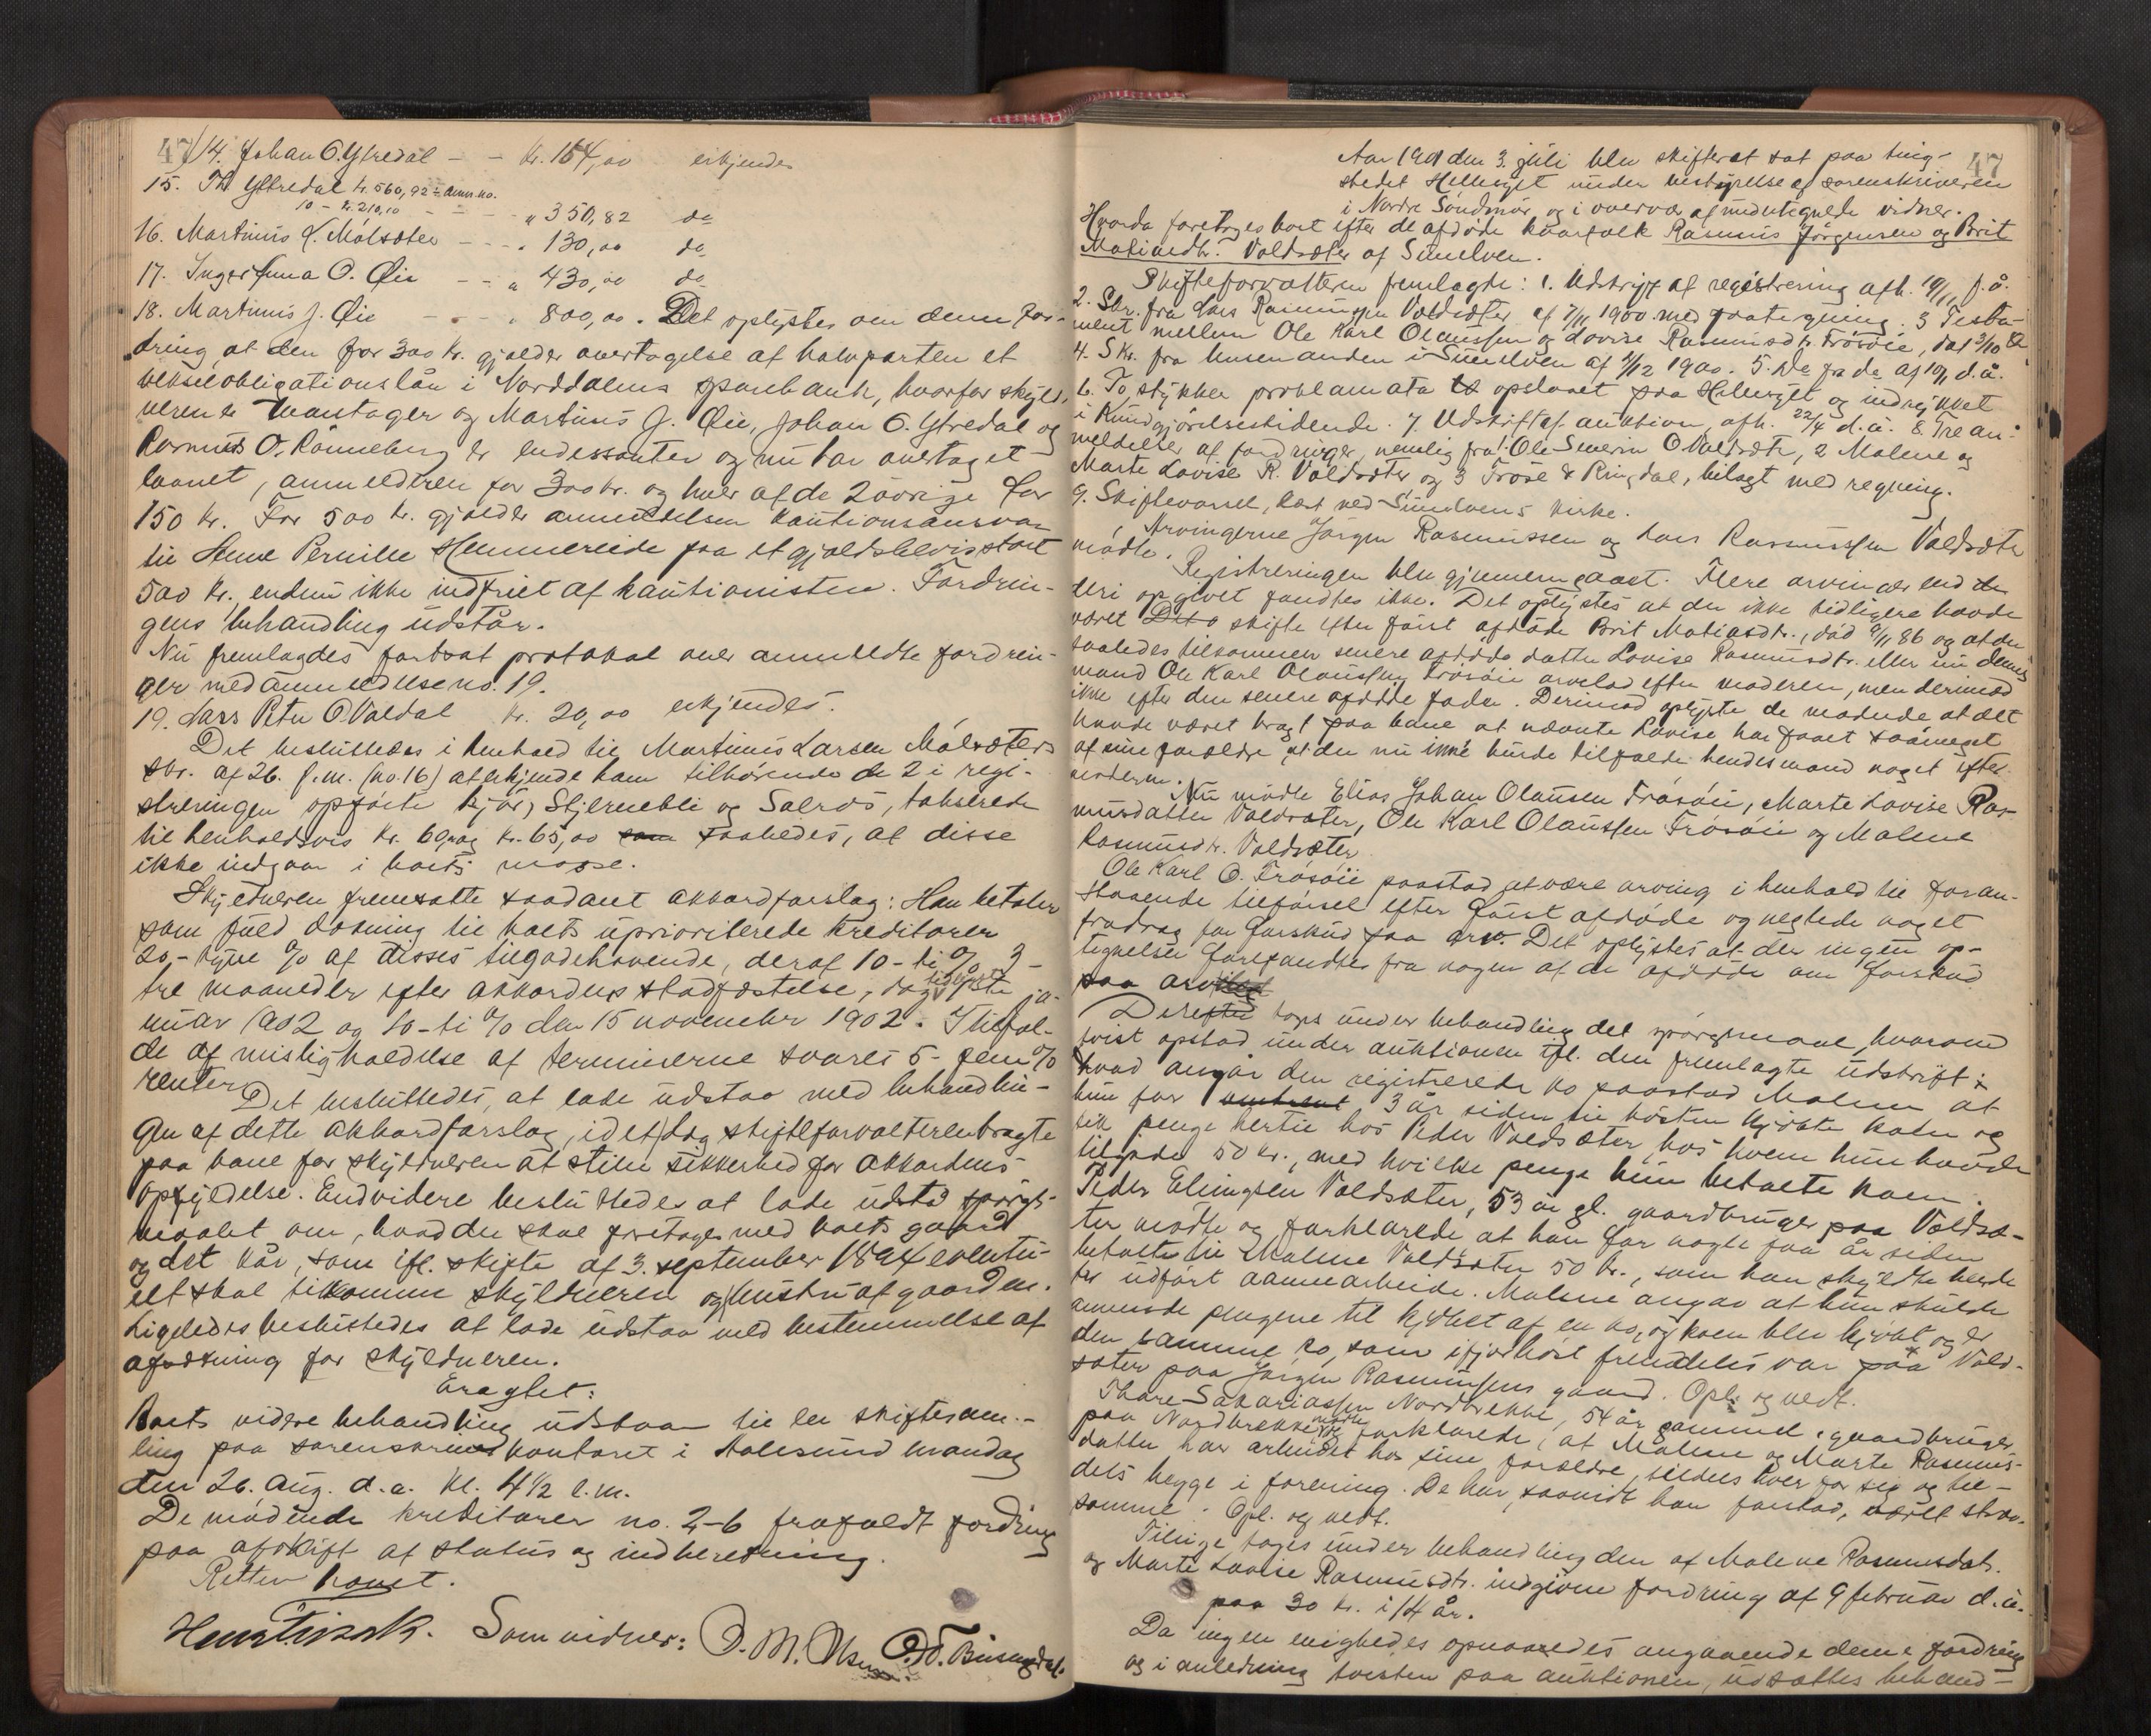 47
14. Johan O. Ytredal - - Kr. 164,00 erkjendes
15. Th Yttredal Kr. 560,92 ÷ anm. no.
10 - kr. 210,10 - - - - " 350,82 do
16. Martinus L. Målsæter - - - " 130,00 do
17. Inger Anna O. Øie - - " 430,00 do
18. Martinus J. Øie - - - " 800,00. Det oplystes om denne for-
dring, at den for 300 kr. gjælder overtagelse af halvparten et
vekselobligationslån i Norddalens sparebank, hvorfor skyld-
neren er låntager og Martinus J. Øie, Johan O. Ytredal og
Rasmus O. Rønneberg er endossenter og nu har overtaget
laanet, anmelderen for 300 kr. og hver af de 2 øvrige for
150 kr. For 500 kr. gjælder anmeldelsen kautionsansvar
til Lene Pernille Hemmereide paa et gjældsbevis stort
500 kr., endnu ikke indfriet af kautionisten. Fordrin-
gens behandling udstår.
Nu fremlagdes fortsat protokol over anmeldte fordrin-
ger med anmeldelse no. 19.
19. Lars Peter O. Valdal kr. 20,00 erkjendes.
Det besluttedes i henhold til Martinus Larsen Målsæters
skr. af 26. f.m. (no. 16) at erkjende ham tilhørende de 2 i regi-
streringen opførte kjør, Stjernebli og Salros, takserede
til henholdsvis kr. 60,00 og kr. 65,00 saaledes, at disse
ikke indgaar i boets masse.
Skyldneren fremsatte saadant akkordforslag: Han betaler
som fuld dækning til boets uprioriterede kreditorer
20,- tyve % af disses tilgodehavende, deraf 10- ti % 3-
tre maaneder efter akkordens stadfæstelse, dog tidligst ja-
nuar 1902 og 10- ti % den 15 november 1902. I tilfæl-
de af misligholdelse af terminerne svares 5- fem %
renter.
Det besluttedes, at lade udstaa med behandlin-
gen af dette akkordforslag, idet dog skifteforvalteren bragte
paa bane for skyldneren at stille sikkerhed for akkordens
opfyldelse. Endvidere besluttedes at lade udstå spørgs-
maalet om, hvad der skal foretages med boets gaard
og det kår, som ifl. skifte af 3. september 1894 eventu-
elt skal tilkomme skyldneren og hustru af gaarden.
Ligeledes besluttedes at lade udstaa med bestemmelse af
aflønning for skyldneren.
Eragtet:
Boets videre behandling udstaar til en skiftesam-
ling paa sorenskriverkontoret i Aalesund mandag
den 26. aug. d.a. kl. 4½ e.m.
De mødende kreditorer no. 2-6 frafaldt fordring
paa afskrift af status og indberetning.
Retten hævet.
Som vidner: O. M. Olsen
47
Aar 1901 den 3. juli blev skifteret sat paa ting-
stedet Hellesylt under bestyrelse af sorenskriveren
i Nordre Søndmør og i overvær af undertegnede vidner.
Hvorda foretoges boet efter de afdøde kaarfolk Rasmus Jørgensen og Brit
Matiasdtr. Voldsæter af Sunelven.
Skifteforvalteren fremlagde: 1. Udskrift af registrering afh. 19/11 f.å.
2. Skr. fra Lars Rasmussen Voldsæter af 7/11 1900 med paategning. 3. Testa-
ment mellem Ole Karl Olaussen og Lovise Rasmusdtr. Frøsøie, dat. 3/10
4. Skr. fra lensmanden i Sunelven af 4/12 1900. 5. Do fra do af 10/1 d.å.
6. To stykker proklamata opslaaet paa Hellesylt og indrykket
i Kundgjørelsestidende. 7. Udskrift af auktion, afh. 22/4 d.å. 8. Tre an-
meldelser af fordringer, nemlig fra 1 Ole Severin O. Voldsæter, 2 Malene og
Marte Lovise R. Voldsæter og 3 Frøse & Ringdal, bilagt med regning.
9. Skiftevarsel, læst ved Sunelvens kirke.
Arvingerne Jørgen Rasmussen og Lars Rasmussen Voldsæter
mødte.
Registreringen blev gjennemgaaet. Flere arvinger end de
deri opgivet fandtes ikke. Det oplystes at der ikke tidligere havde
været skifte efter først afdøde Brit Matiasdtr., død 9/11 86 og at der
saaledes tilkommer senere afdøde datter Lovise Rasmusdtr. eller nu dennes
mand Ole Karl Olaussen Frøsøie arvelod efter moderen, men derimod
ikke efter den senere afdøde fader. Derimod oplyste de mødende at det
havde været bragt paa bane at nævnte Lovise har faaet saameget
af sine forældre, at der nu ikke burde tilfalde hendes mand noget efter
moderen.
Nu mødte Elias Johan Olausen Frøsøie, Marte Lovise Ras-
musdatter Voldsæter, Ole Karl Olaussen Frøsøie og Malene
Rasmusdtr. Voldsæter.
Ole Karl O. Frøsøie paastod at være arving i henhold til foran-
staaende tilførsel efter først afdøde og negtede noget
fradrag for forskud paa arv. Det oplystes at der ingen op-
tegnelser forefandtes fra nogen af de afdøde om forskud
paa arv.
Derefter toges under behandling det spørgsmaal, hvorom
tvist opstod under auktionen ifl. den fremlagte udskrift:
hvad angår den registrerede ko paastod Malene at
hun for 3 år siden til høsten kjøbte koen og
fik penge hertil hos Peder Voldsæter, hos hvem hun havde
tilgode 50 kr., med hvilke penge hun betalte koen.
Peder Elingsen Voldsæter, 53 år gl. gaardbruger paa Voldsæ-
ter mødte og forklarede at han for nogle faa år siden
betalte til Malene Voldsæter 50 kr., som han skyldte hende
for udført aannearbeide. Malene angav at hun skulde
anvende pengene til kjøbet af en ko, og koen blev kjøbt og er
den samme ko, som ifjorhøst fremdeles var paa Vold-
sæter paa Jørgen Rasmussens gaard. Opl. og vedt.
Thore Sakariassen Nordbrekke, 54 år gammel, gaardbruger
paa Nordbrekke mødte og forklarede, at Malene og Marte Rasmus-
datter har arbeidet hos sine forældre, tildels hver for sig og til-
dels begge i forening. De har, saavidt han forstod, været stræv-
somme. Opl. og vedt.
Tillige toges under behandling den af Malene Rasmusdatr.
og Marte Lovise Rasmusdtr. indgivne fordring af 9 februar d.å.
paa 30 kr. i 14 år.
Da ingen enighedes opnaaedes angaaende denne fordring
og i anledning tvisten paa auktionen, udsattes behand-